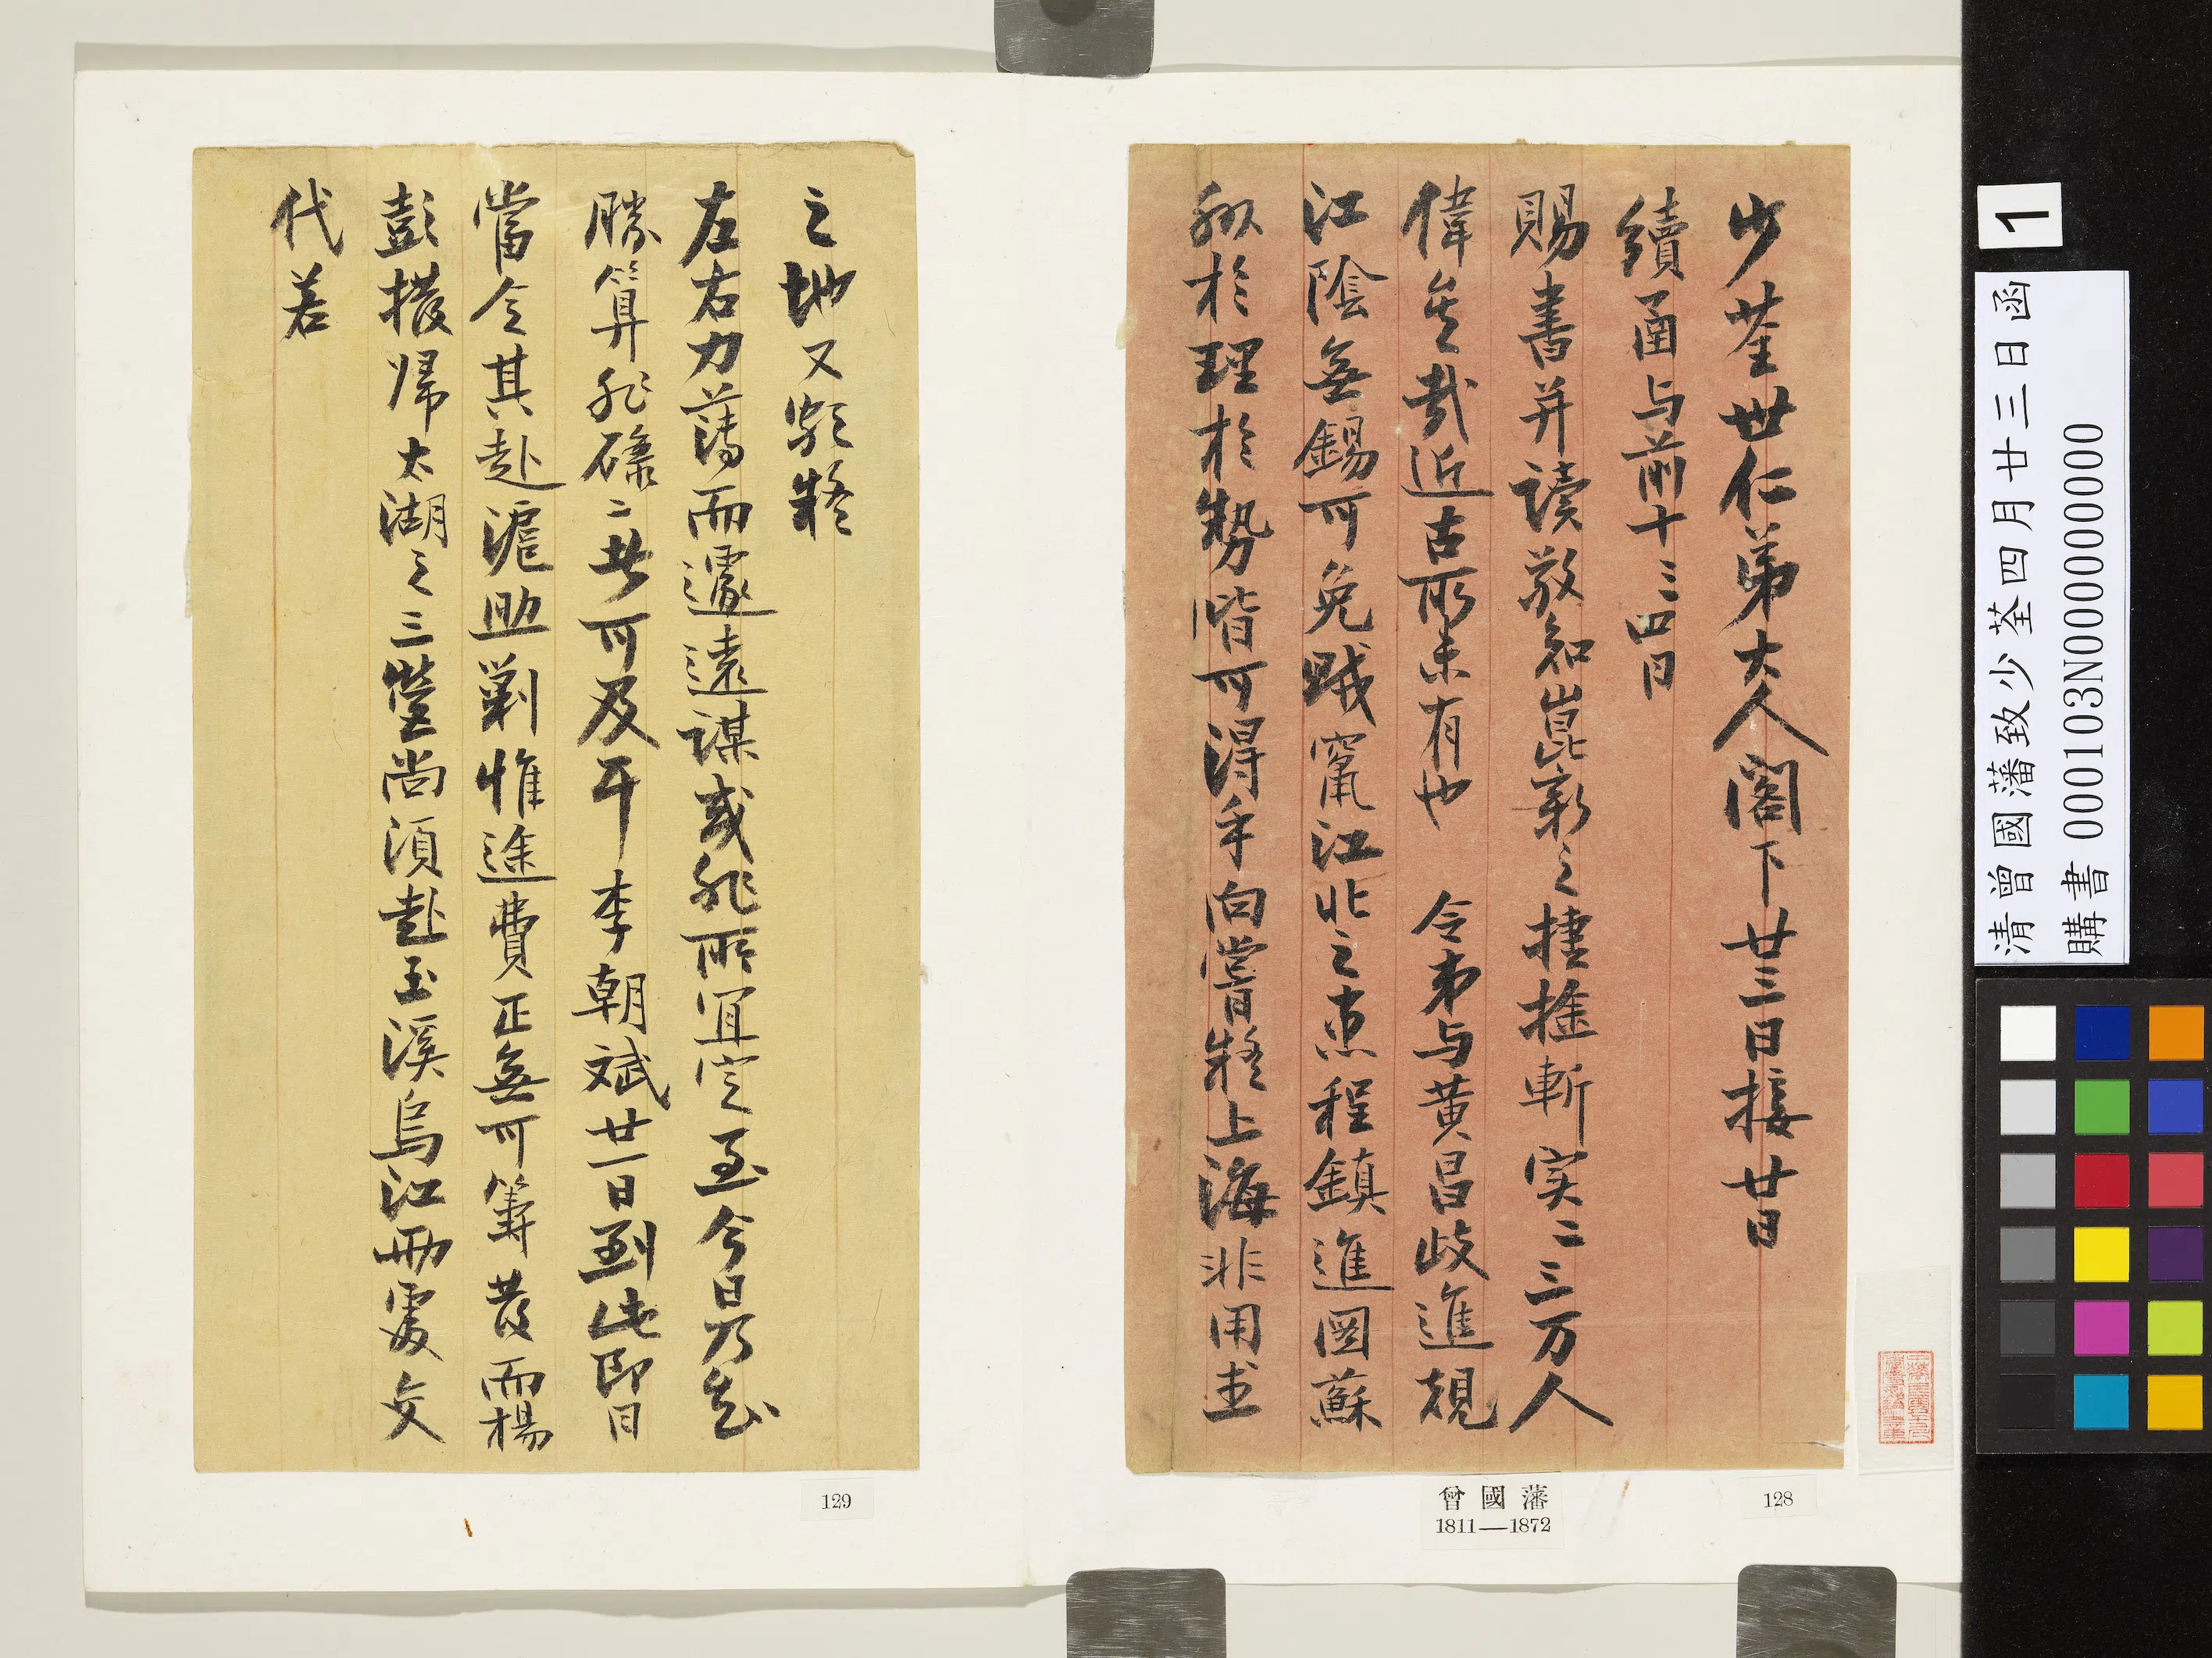 少荃世仁弟大人閣下廿三日接廿日
續函与前十三四日
賜書并讀敬知崑新之捷擒斬实二三万人
偉矣哉近古所未有也 令弟与黄昌歧進規
江陰無錫可免賊竄江北之患程鎮進圖蘇
於理於勢皆可得手向嘗疑上海非用武
之地又頗疑
左右力薄而遽遠謀或非所宜实至今日乃知
勝算非碌二者可及耳李朝斌廿一日到此即日
當令其赴滬助剿惟途費正無可籌昔而楊
彭撥歸太湖之三營尚須赴玉溪烏江兩處交
代若
曾國藩
1811—1872
128
129
清曾國藩致少荃四月廿三日函
購書 000103N000000000
1